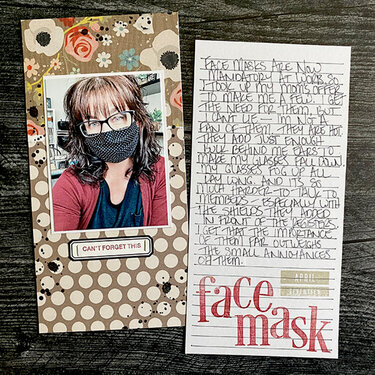 CAN'T FORGET THIS
FACE MASKS ARE NOW
MANDATORY AT WORK SO
I TOOK UP MY MOM'S OFFER
TO MAKE ME A FEW. I GET
THE NEED FOR THEM, BUT
I CAN'T LIE - I'M NOT A
FAN OF THEM. THEY ARE HOT
THEY ADD JUST ENOUGH
BULK BEHIND MY EARS TO
MAKE MY GLASSES FALL DOWN,
MY GLASSES FOG UP ALL
DAY LONG, AND IT'S SO
MUCH HARDER TO TALK TO
MEMBERS - ESPECIALLY WITH
THE SHIELDS THEY ADDED
IN FRONT OF THE REGISTERS.
I GET THAT THE IMPORTANCE
OF THEM FAR OUTWEIGHS
THE SMALL ANNOYANCES
OF THEM.
APRIL
face
mask